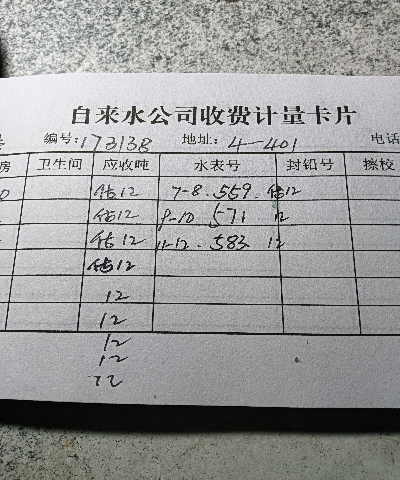 自来水公司收费计量卡片
编号:17313B 地址: 4-401 电话
房 卫生间 应收吨 水表号 封铅号 擦校
0 估12 7-8.559. 估12
估12 9-10 571 12
估12 11-12.583 12
估12
12
12
12
12
12